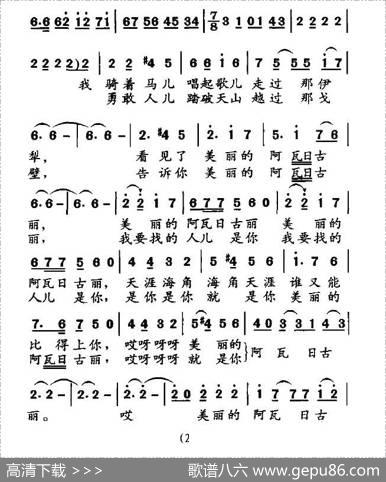 6·6 62 12 71 | 67 56 45 34 | 7/8 3 101 01 43 | 2 2 2 2
2 2 2 2) 2 | 2 2 #4 5 | 6 6 1 6 | 7 5 5 5 17
我 骑着 马儿 唱起 歌儿 走过 那伊
勇敢 人儿 踏破 天山 越过 那戈
6· 6· 6 - | 6· 6· 6 - | 2· #4 5 | 2· 1 7 | 5· 5 1 7 6
犁， 看见了 美丽的 阿瓦日古
壁， 告诉你 美丽的 阿瓦日古
丽， 美丽的 阿瓦日古丽 美丽的
丽， 我要找的 人儿 是你 我要找的
6 7 7 5 0 | 4 4 3 2 | 5 #4 5 6 | 1· 7 6
阿瓦日古丽，天涯海角 海角天涯 谁又能
人儿 是你，是你是你 就 是你 美丽的
7· 6 7 5 0
比 得上你，哎呀呀呀 美丽的
阿瓦日古丽，哎呀呀呀 就是你
阿瓦 日古
丽。 哎 美丽的 阿瓦 日古
(2
高清下载 >>> 歌谱八六 www.gepu86.com